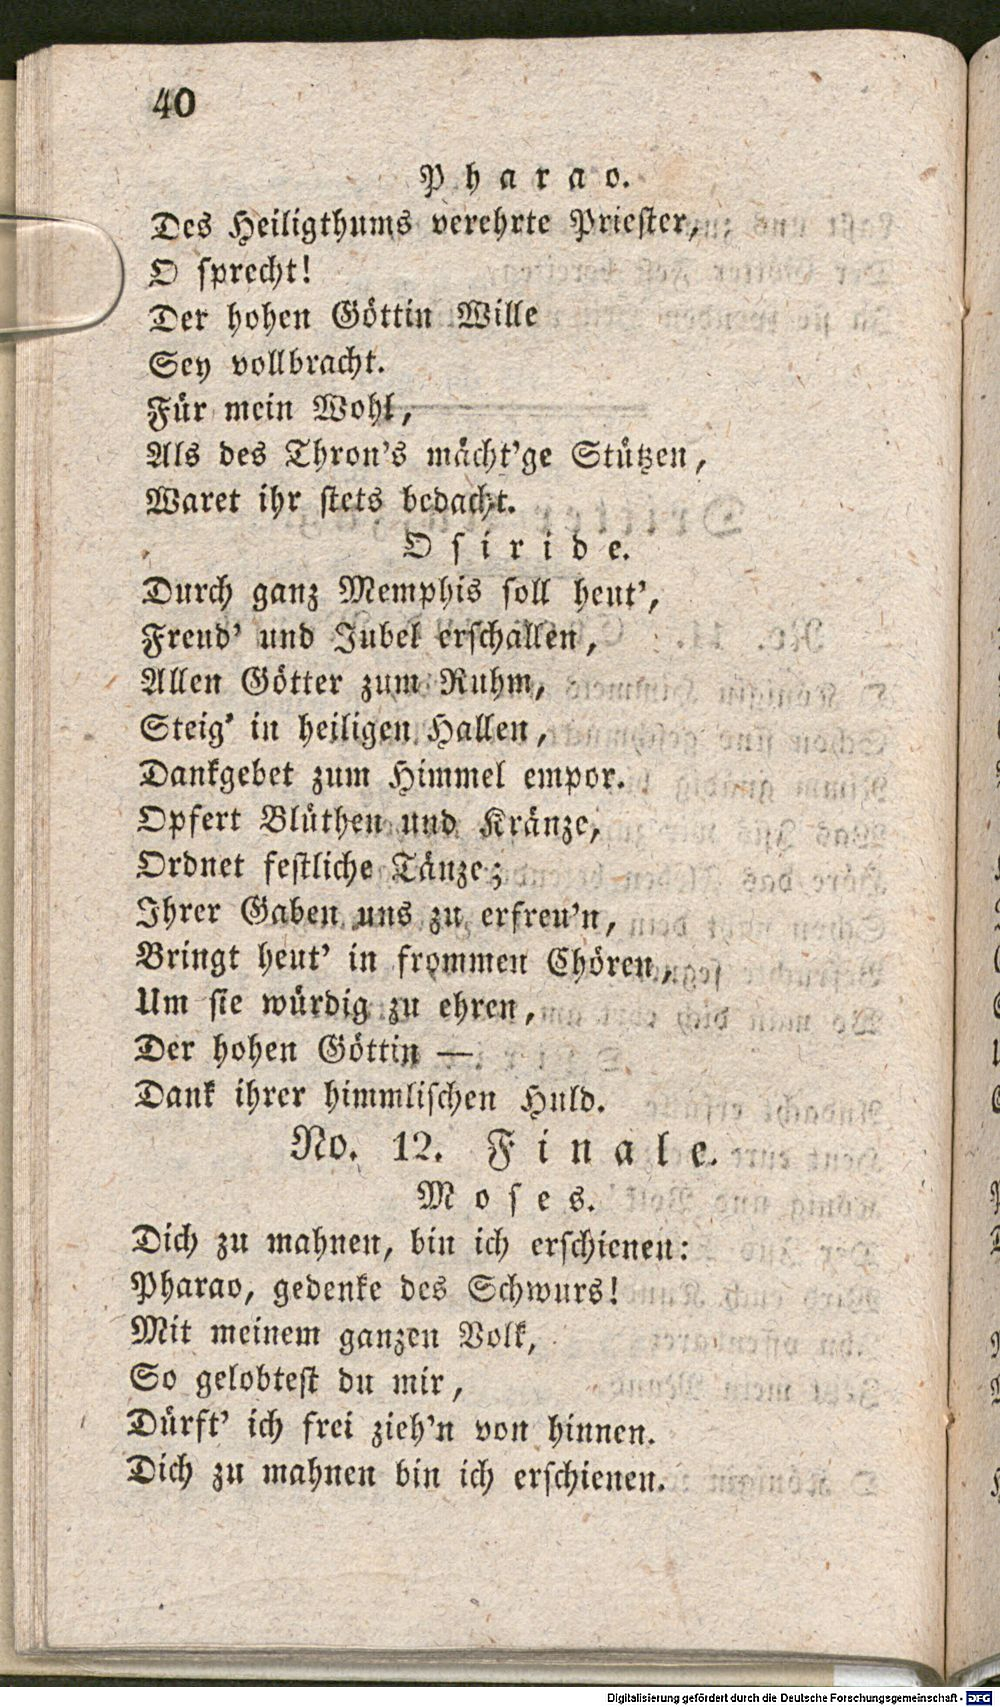 40
Pharao.
Des Heiligthums verehrte Priester,
O sprecht!
Der hohen Göttin Wille
Sey vollbracht.
Für mein Wohl,
Als des Thron's mächt'ge Stützen,
Waret ihr stets bedacht.
Osiride.
Durch ganz Memphis soll heut',
Freud' und Jubel erschallen,
Allen Götter zum Ruhm,
Steig' in heiligen Hallen,
Dankgebet zum Himmel empor.
Opfert Blüthen und Kränze,
Ordnet festliche Tänze;
Ihrer Gaben uns zu erfreu'n,
Bringt heut' in frommen Chören,
Um sie würdig zu ehren,
Der hohen Göttin —
Dank ihrer himmlischen Huld.
No. 12. Finale.
Moses.
Dich zu mahnen, bin ich erschienen:
Pharao, gedenke des Schwurs!
Mit meinem ganzen Volk,
So gelobtest du mir,
Dürft' ich frei zieh'n von hinnen.
Dich zu mahnen bin ich erschienen.
Digitalisierung gefördert durch die Deutsche Forschungsgemeinschaft - DFG